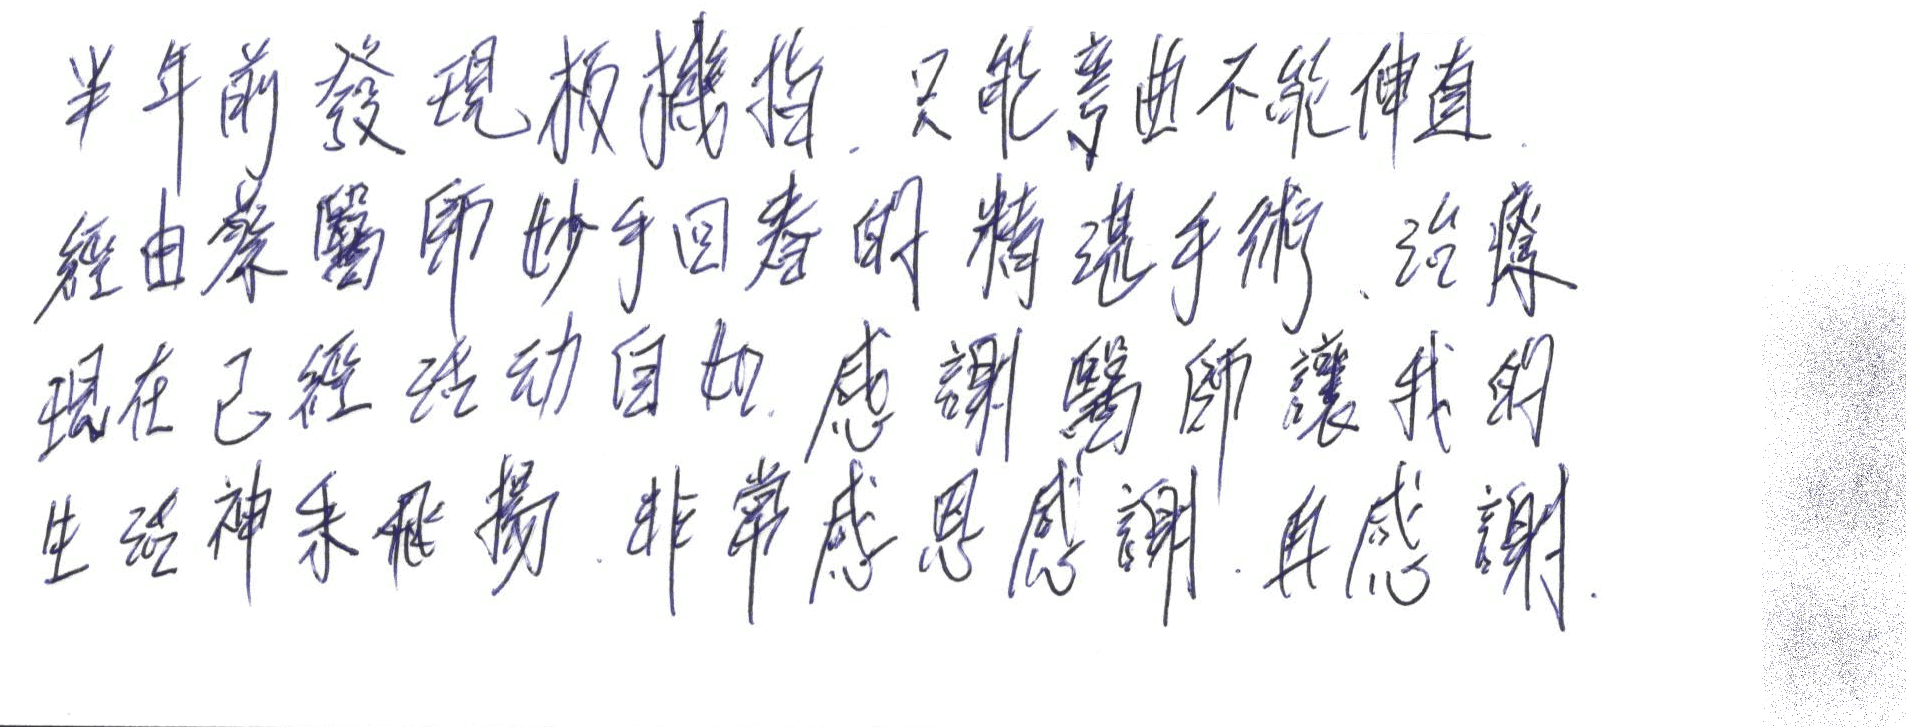 半年前發現板機指.只能彎曲不能伸直.
經由蔡醫師妙手回春的精湛手術.治療
現在已經活动自如.感謝醫師讓我的
生活神采飛揚.非常感恩感謝.再感謝.